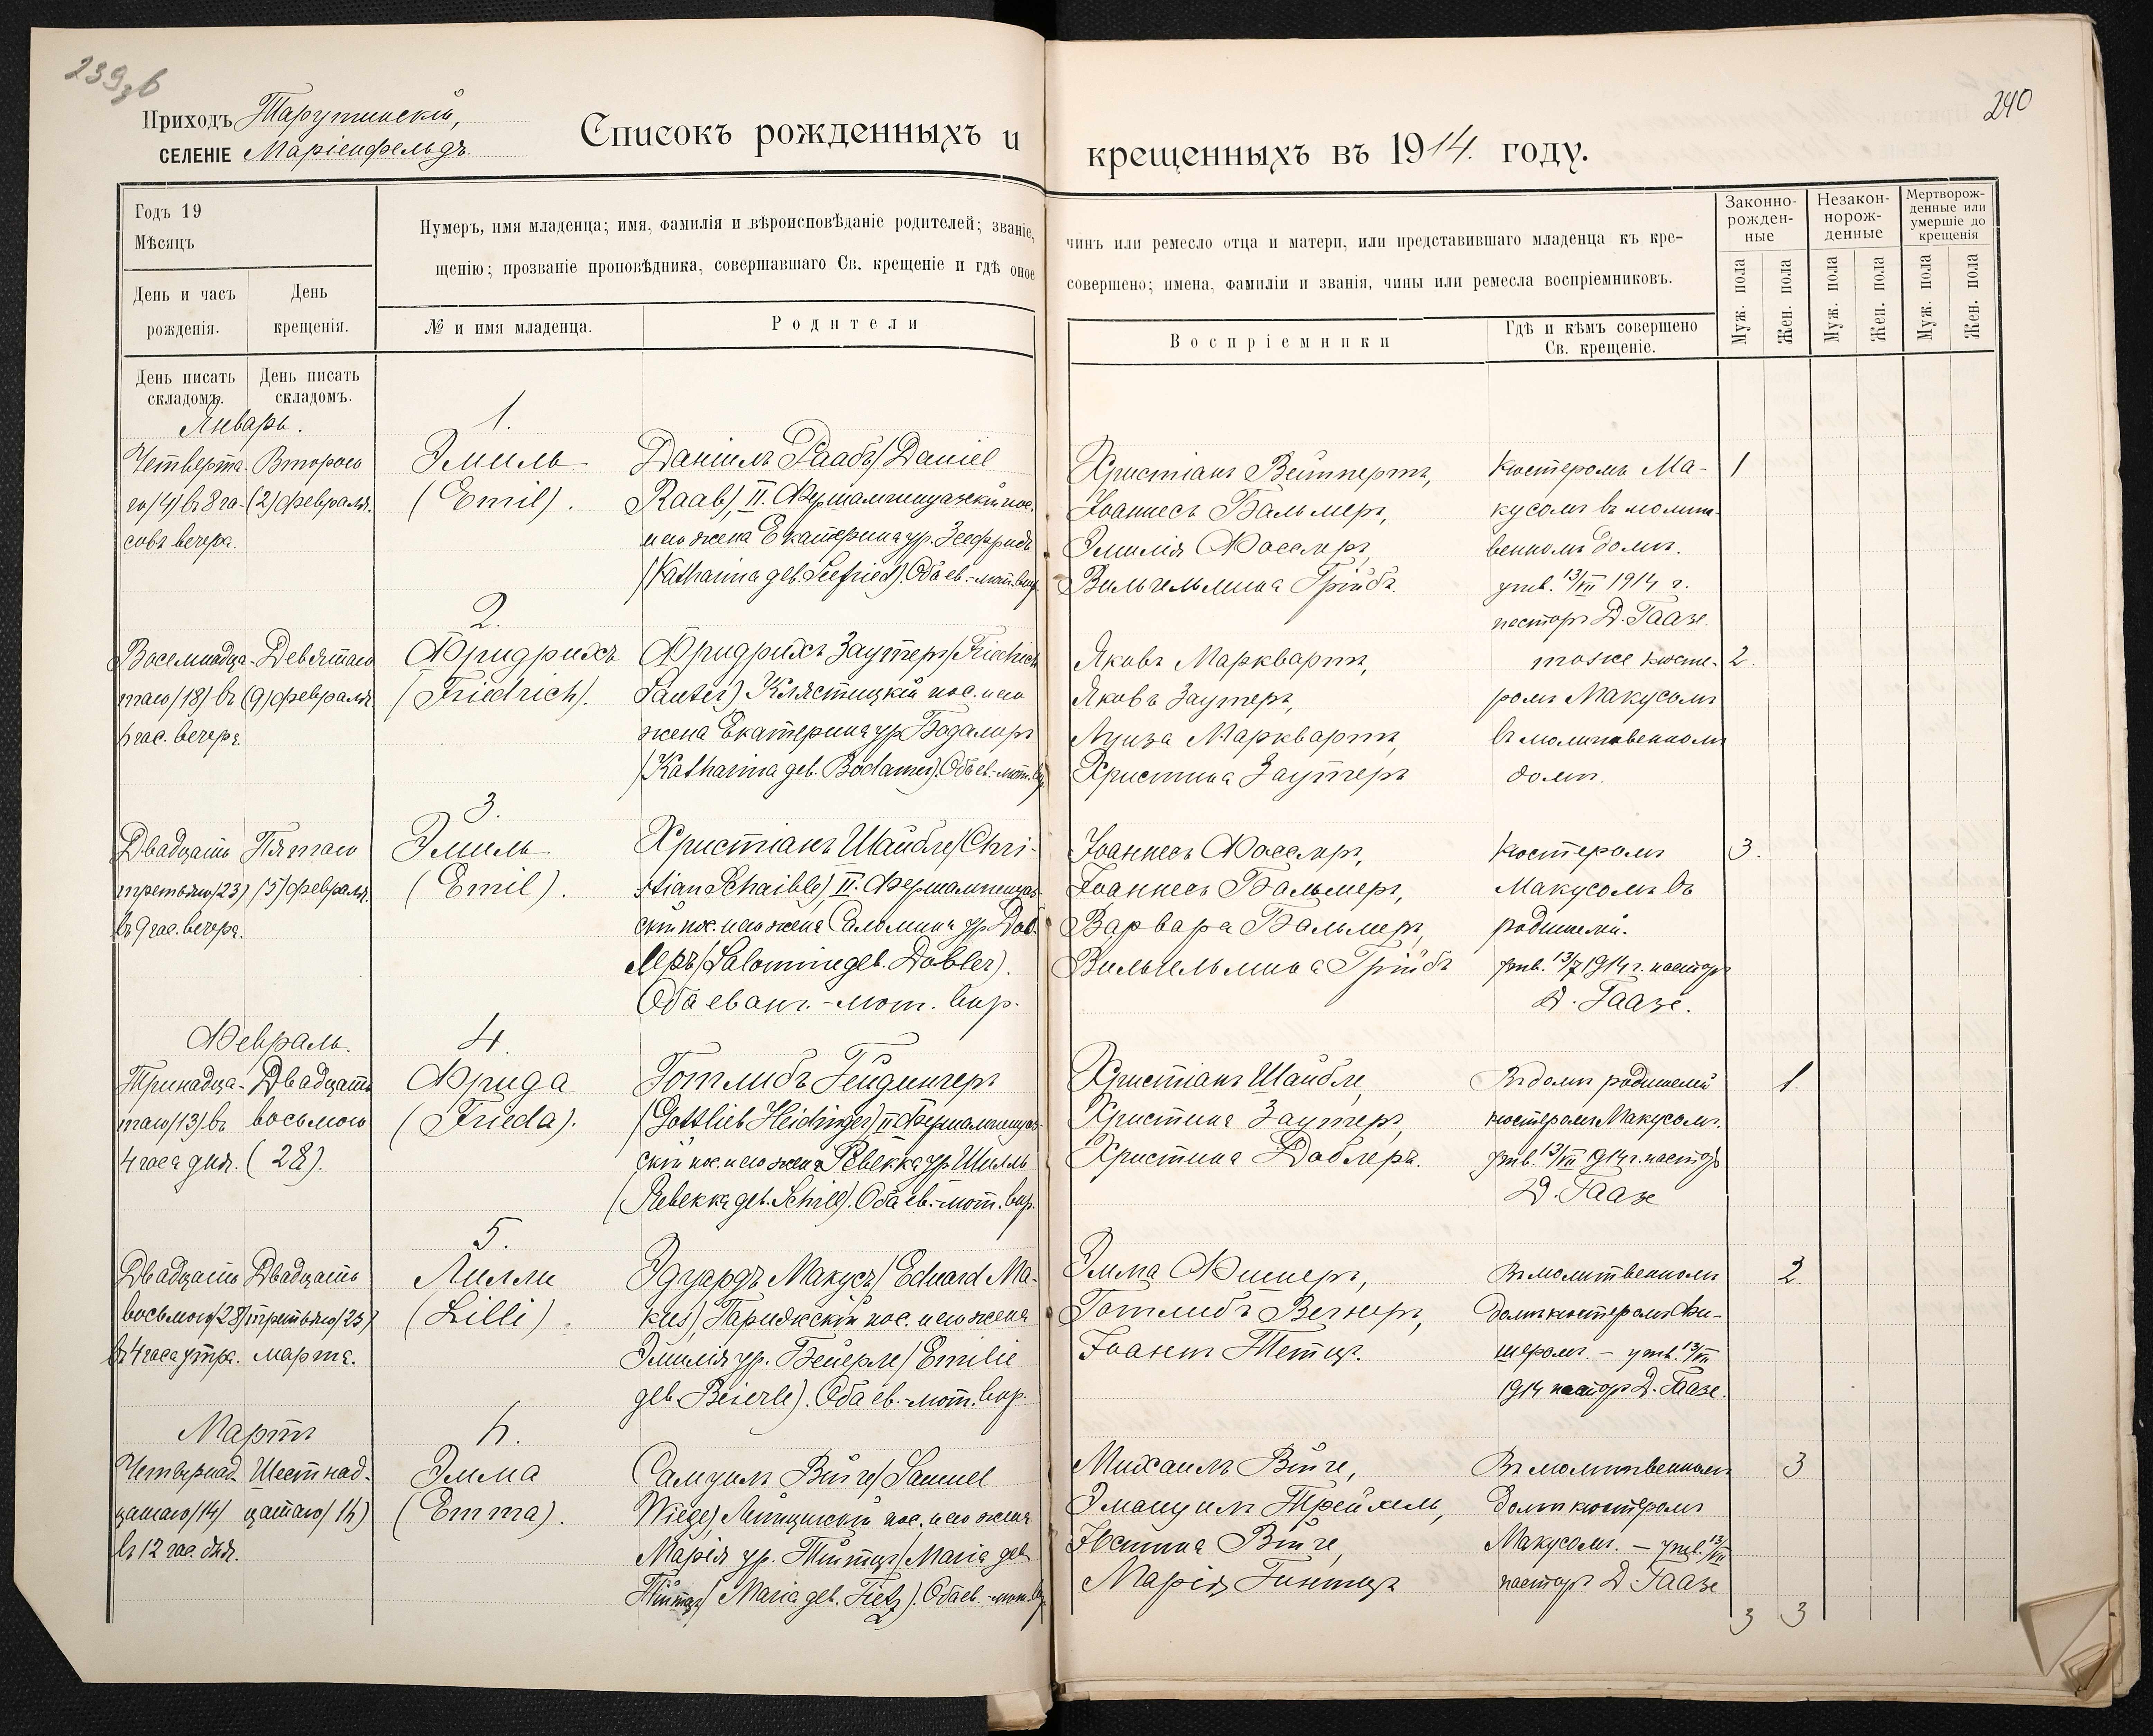 239 зб
240
Приходъ Тарутинскій,
СЕЛЕНІЕ Маріенфельдъ
Списокъ рожденныхъ и крещенныхъ въ 1914. году.
Годъ 19
Мѣсяцъ
День и часъ рожденія.
День крещенія.
Нумеръ, имя младенца; имя, фамилія и вѣроисповѣданіе родителей; званіе, чинъ или ремесло отца и матери, или представившаго младенца къ кре-
щенію; прозваніе проповѣдника, совершавшаго Св. крещеніе и гдѣ оное совершено; имена, фамиліи и званія, чины или ремесла воспріемниковъ.
№ и имя младенца.
Родители
Воспріемники
Гдѣ и кѣмъ совершено
Св. крещеніе.
Законно-
рожден-
ные
Незакон-
норож-
денные
Мертворож-
денные или
умершіе до
крещенія
Муж. пола
Жен. пола
Муж. пола
Жен. пола
Муж. пола
Жен. пола
День писать
складомъ.
День писать
складомъ.
Январь.
1.
Четверта-
го (4) въ 8 ча-
совъ вечера.
Второго
(2) февраля.
Эмиль
(Emil).
Даніилъ Раабъ (Daniel
Raab), II. Фершампенуазскій пос.
и его жена Екатерина ур. Зеефридъ
(Katharina geb. Seefried). Оба ев.-лют. вѣр.
Христіанъ Вейппертъ,
Іоаннесъ Бальмеръ,
Эмилія Фосслеръ,
Вильгельмина Грійбъ.
кюстеромъ Ма-
кусомъ въ молит-
венномъ домѣ.
утв. 13/VII 1914 г.
пасторъ Д. Гаазе.
1
2.
Восемнадца-
таго (18) въ
6 час. вечера.
Девятаго
(9) февраля.
Фридрихъ
(Friedrich).
Фридрихъ Заутеръ (Friedrich
Sauter) Клястицкій пос. и его
жена Екатерина ур. Бодамеръ
(Katharina geb. Bodamer). Оба ев.-лют. вѣр.
Яковъ Марквартъ,
Яковъ Заутеръ,
Луиза Марквартъ,
Христина Заутеръ
тоже кюсте-
ромъ Макусомъ
въ молитвенномъ
домѣ.
2.
3.
Двадцать
третьяго (23)
въ 9 час. вечера.
Пятаго
(5) февраля.
Эмиль
(Emil).
Христіанъ Шайбле (Chri-
stian Schaible), II. Фершампенуаз-
скій пос. и его жена Саломина ур. Доб-
леръ (Salomine geb. Dobler).
Оба еванг.-лют. вѣр.
Іоаннесъ Фосслеръ,
Іоаннесъ Бальмеръ,
Варвара Бальмеръ,
Вильгельмина Грійбъ
кюстеромъ
Макусомъ въ
родителей.
утв. 13/7 1914 г. пасторъ
Д. Гаазе.
3.
Февраль.
4.
Тринадца-
таго (13) въ
4 часа дня.
Двадцать
восьмого
(28).
Фрида
(Frieda).
Готлибъ Гейдингеръ
(Gottlieb Heidinger) II Фершампенуаз-
скій пос. и его жена Ревекка ур. Шилль
(Rebekka geb. Schill). Оба ев.-лют. вѣр.
Христіанъ Шайбле,
Христина Заутеръ,
Христина Доблеръ.
Въ домѣ родителей
кюстеромъ Макусомъ.
утв. 13/VII 1914 г. пасторъ
Д. Гаазе
1.
5.
Двадцать
восьмого (28)
въ 4 часа утра.
Двадцать
третьяго (23)
марта.
Лилли
(Lilli)
Эдуардъ Макусъ (Eduard Ma-
kus), Парижскій пос. и его жена
Эмилія ур. Бейерле (Emilie
geb. Beierle). Оба ев.-лют. вѣр.
Эмма Фишеръ,
Готлибъ Вегнеръ,
Іоаннъ Тетцъ.
Въ молитвенномъ
домѣ кюстеромъ Фи-
шеромъ. – утв. 13/VII
1914 пасторъ Д. Гаазе.
2
Мартъ
6.
Четырнад-
цатаго (14)
въ 12 час. дня.
Шестнад-
цатаго (16)
Эмма
(Emma).
Самуилъ Вийге (Samuel
Wiege), Лейпцигскій пос. и его жена
Марія ур. Тийтцъ (Maria geb.
Тийтцъ (Maria geb. Tietz). Оба ев.-лют. вѣр.
Михаилъ Вийге,
Эмануилъ Трейхель,
Юстина Вийге,
Марія Гинтцъ
Въ молитвенномъ
домѣ кюстеромъ
Макусомъ. – утв. 13/VII
пасторъ Д. Гаазе
3
3 3